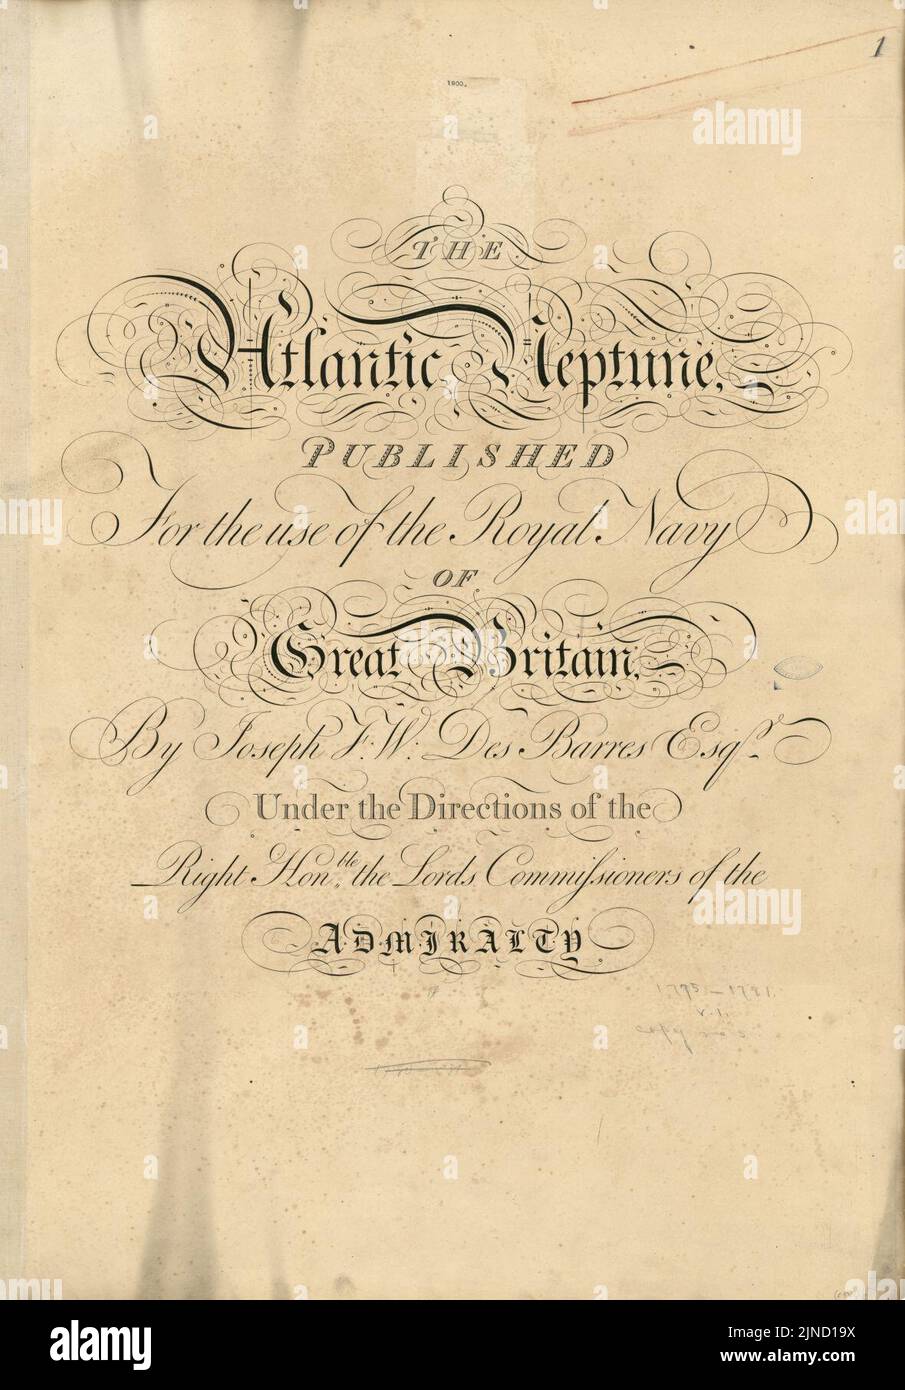 1
1800.
THE
Atlantic Neptune,
PUBLISHED
For the use of the Royal Navy
OF
Great Britain,
By Joseph F: W: Des Barres Esqr.
Under the Directions of the
Right Honble. the Lords Commiſsioners of the
ADMIRALTY
alamy
alamy
Image ID: 2JND19X
www.alamy.com